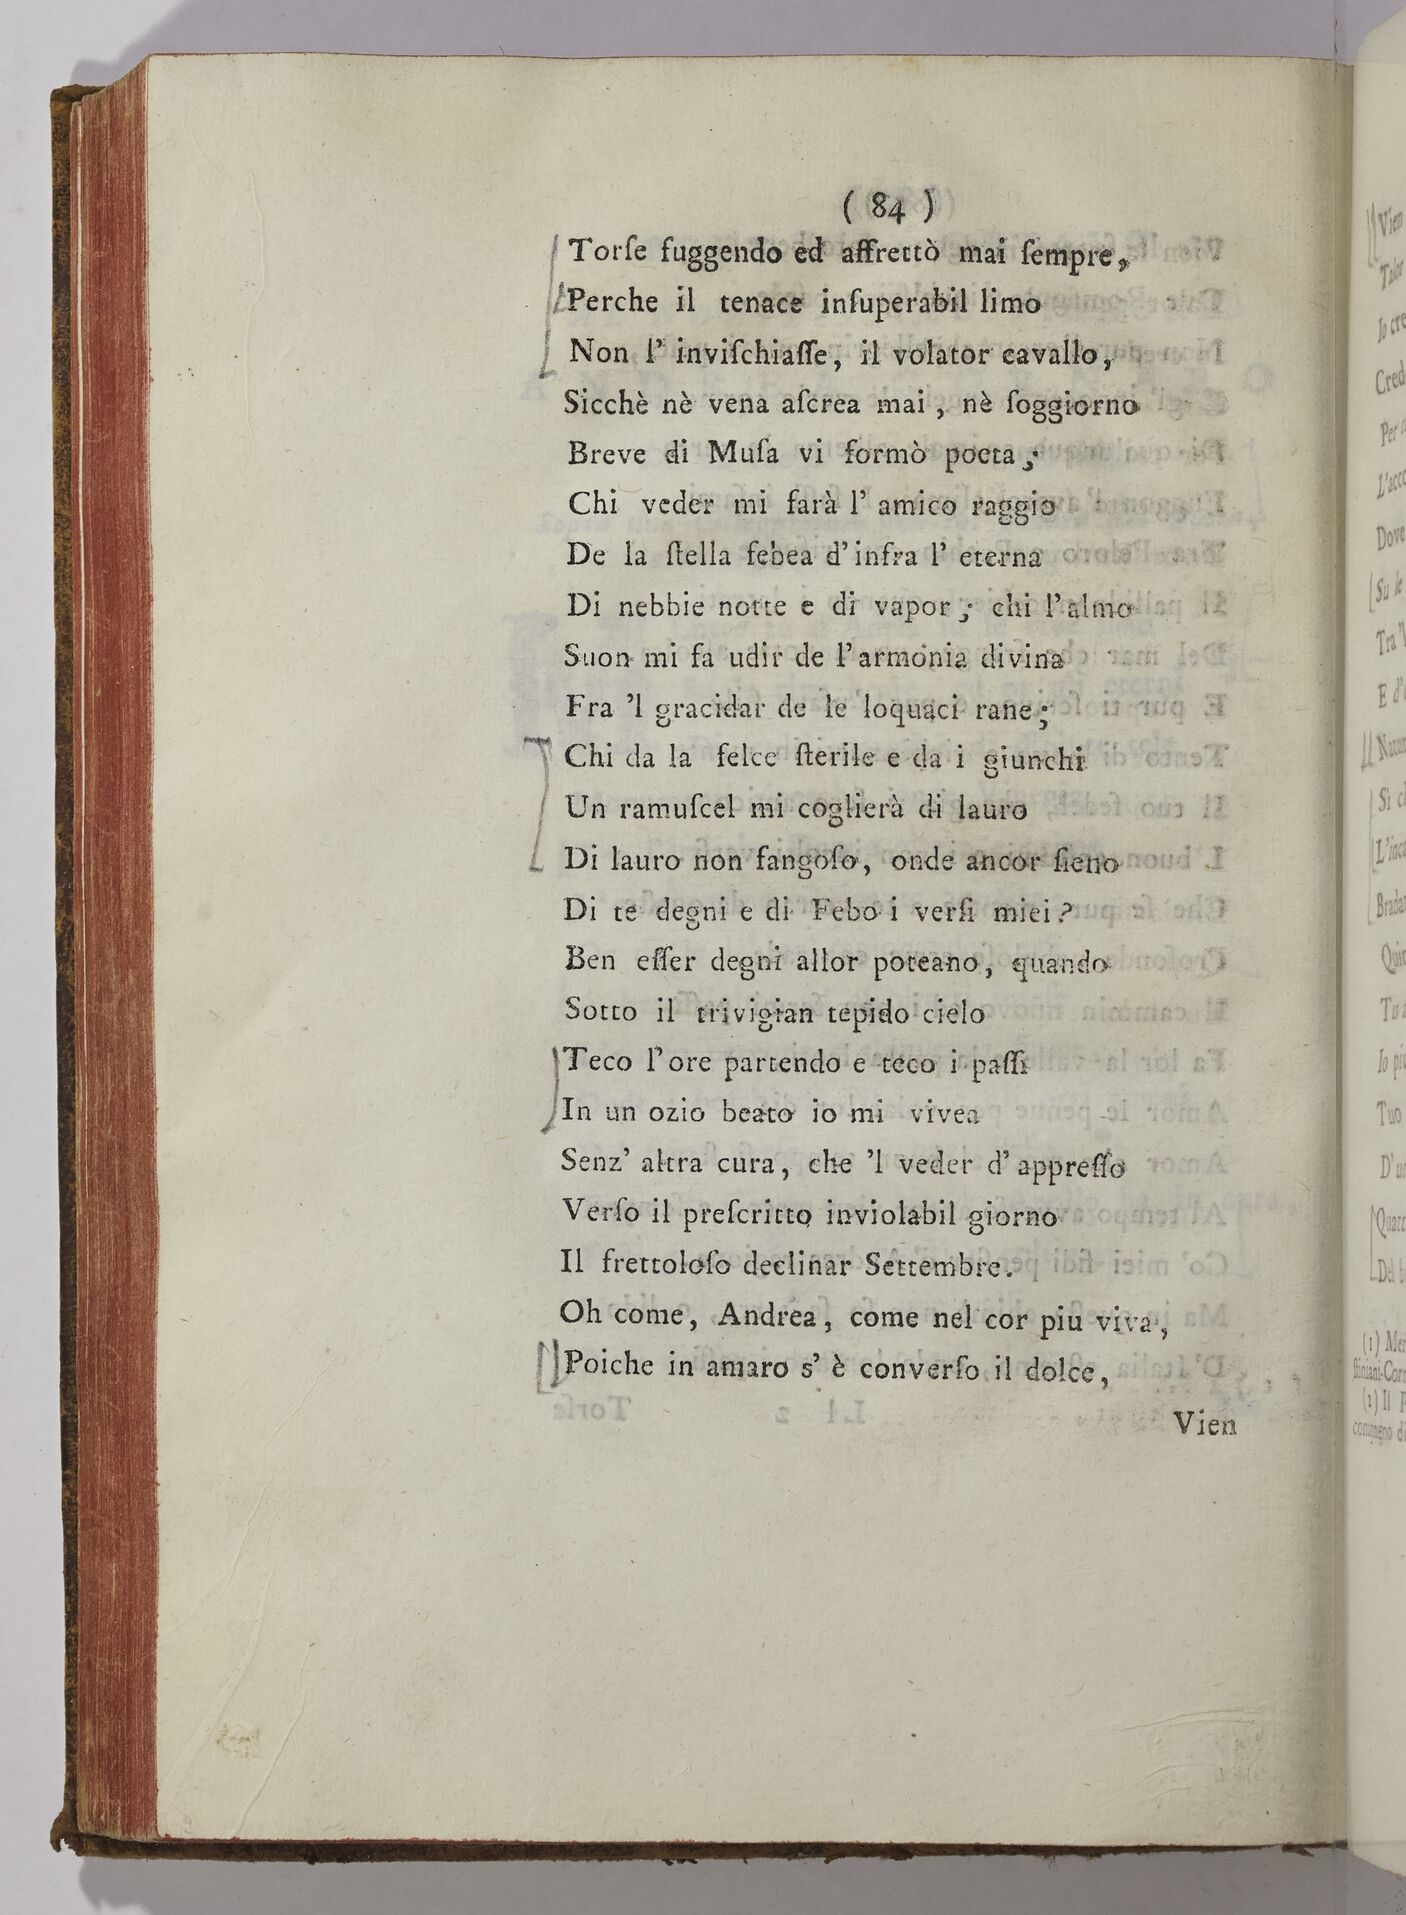 ( 84 )
Torſe fuggendo ed affrettò mai ſempre,
Perche il tenace inſuperabil limo
Non l' inviſchiaſſe, il volator cavallo,
Sicchè nè vena aſcrea mai, nè ſoggiorno
Breve di Muſa vi formò poeta;
Chi veder mi farà l' amico raggio
De la ſtella febea d' infra l' eterna
Di nebbie notte e di vapor; chi l' almo
Suon mi fa udir de l' armonia divina
Fra 'l gracidar de le loquaci rane;
Chi da la felce ſterile e da i giunchi
Un ramuſcel mi coglierà di lauro
Di lauro non fangoſo, onde ancor ſieno
Di te degni e di Febo i verſi miei?
Ben eſſer degni allor poteano, quando
Sotto il trivigian tepido cielo
Teco l' ore partendo e teco i paſſi
In un ozio beato io mi vivea
Senz' altra cura, che 'l veder d' appreſſo
Verſo il preſcritto inviolabil giorno
Il frettoloſo declinar Settembre.
Oh come, Andrea, come nel cor piu viva,
Poiche in amaro s' è converſo il dolce,
Vien
Vien
Io cre
Cred
Per
L'acc
Dove
Su le
Tra
E d'
Natur
Sì c
L'inca
Tu
Io più
Tuo
D'un
Del b
(1) Mer
(2) Il P
compagno di